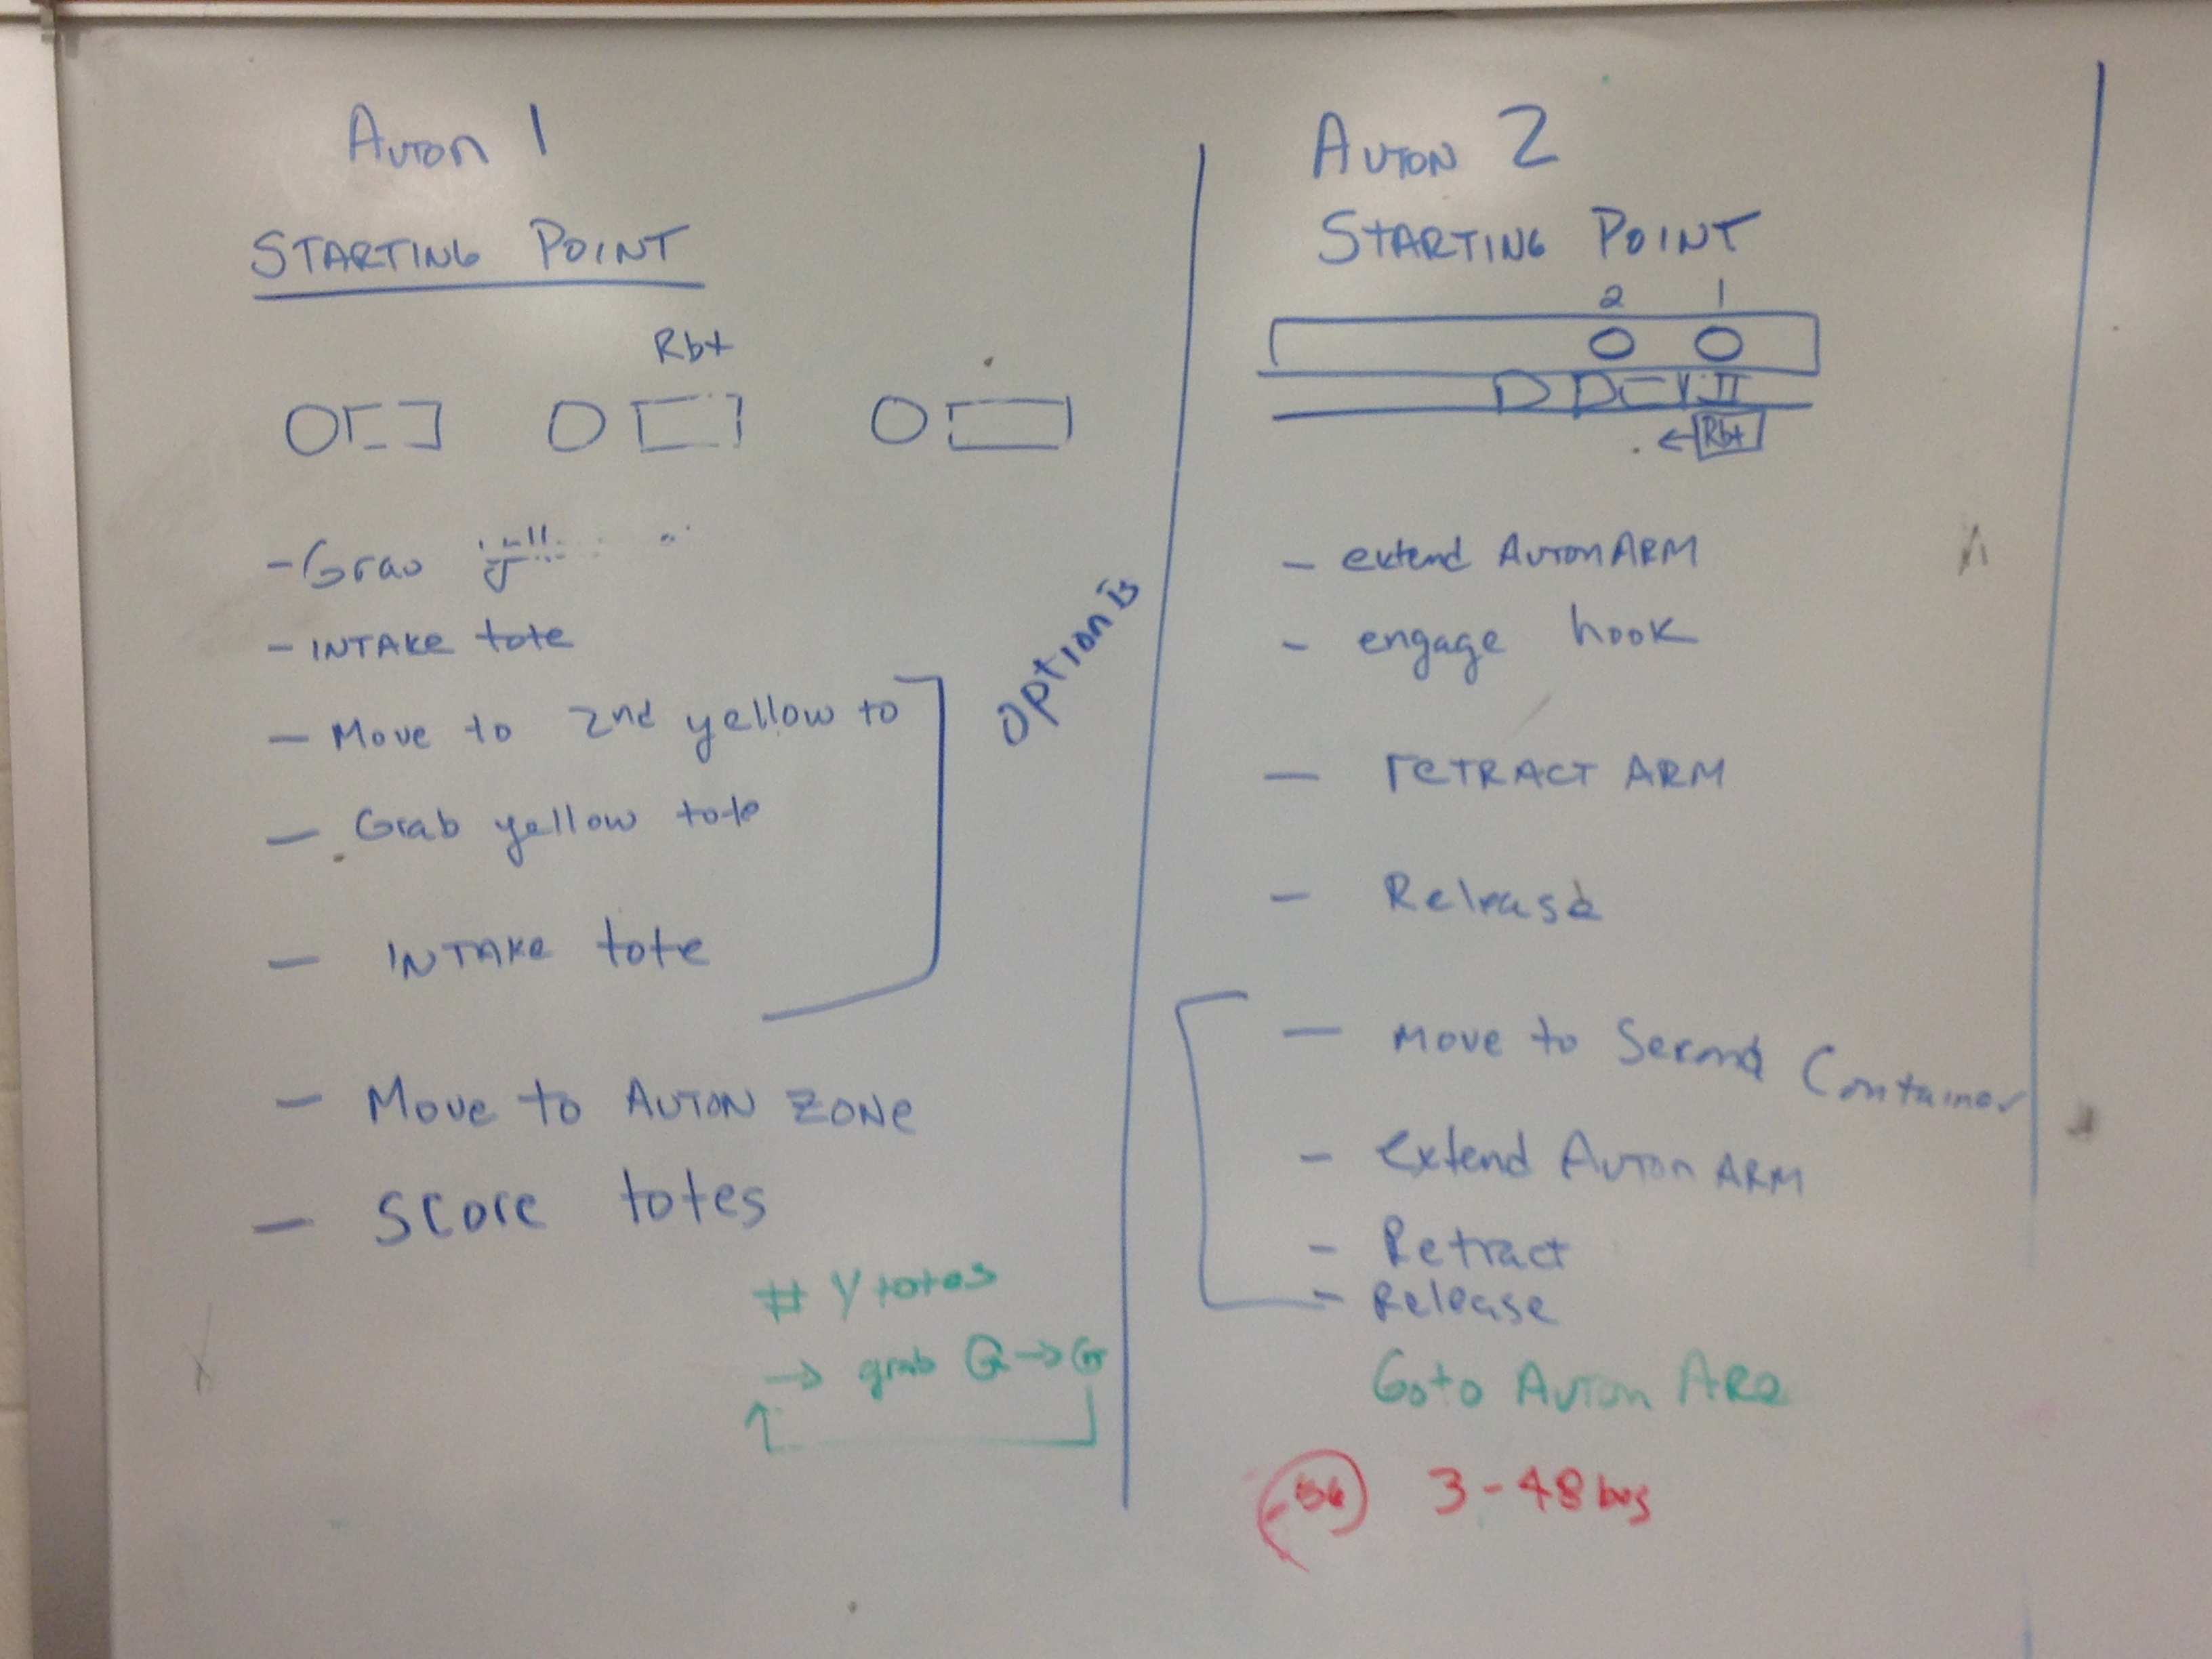 Auton 1
STARTING POINT
Rbt
- Grab
- INTAKE tote
- Move to 2nd yellow to
- Grab yellow tote
- INTAKE tote
- Move to AUTON ZONE
- Score totes
# Y totes
→ grab G → G
AUTON 2
STARTING POINT
2 1
← Rbt
- extend AUTON ARM
- engage hook
- reTRACT ARM
- Release
- Move to Second Container
- extend Auton ARM
- Retract
- Release
Goto Auton Are
3-48